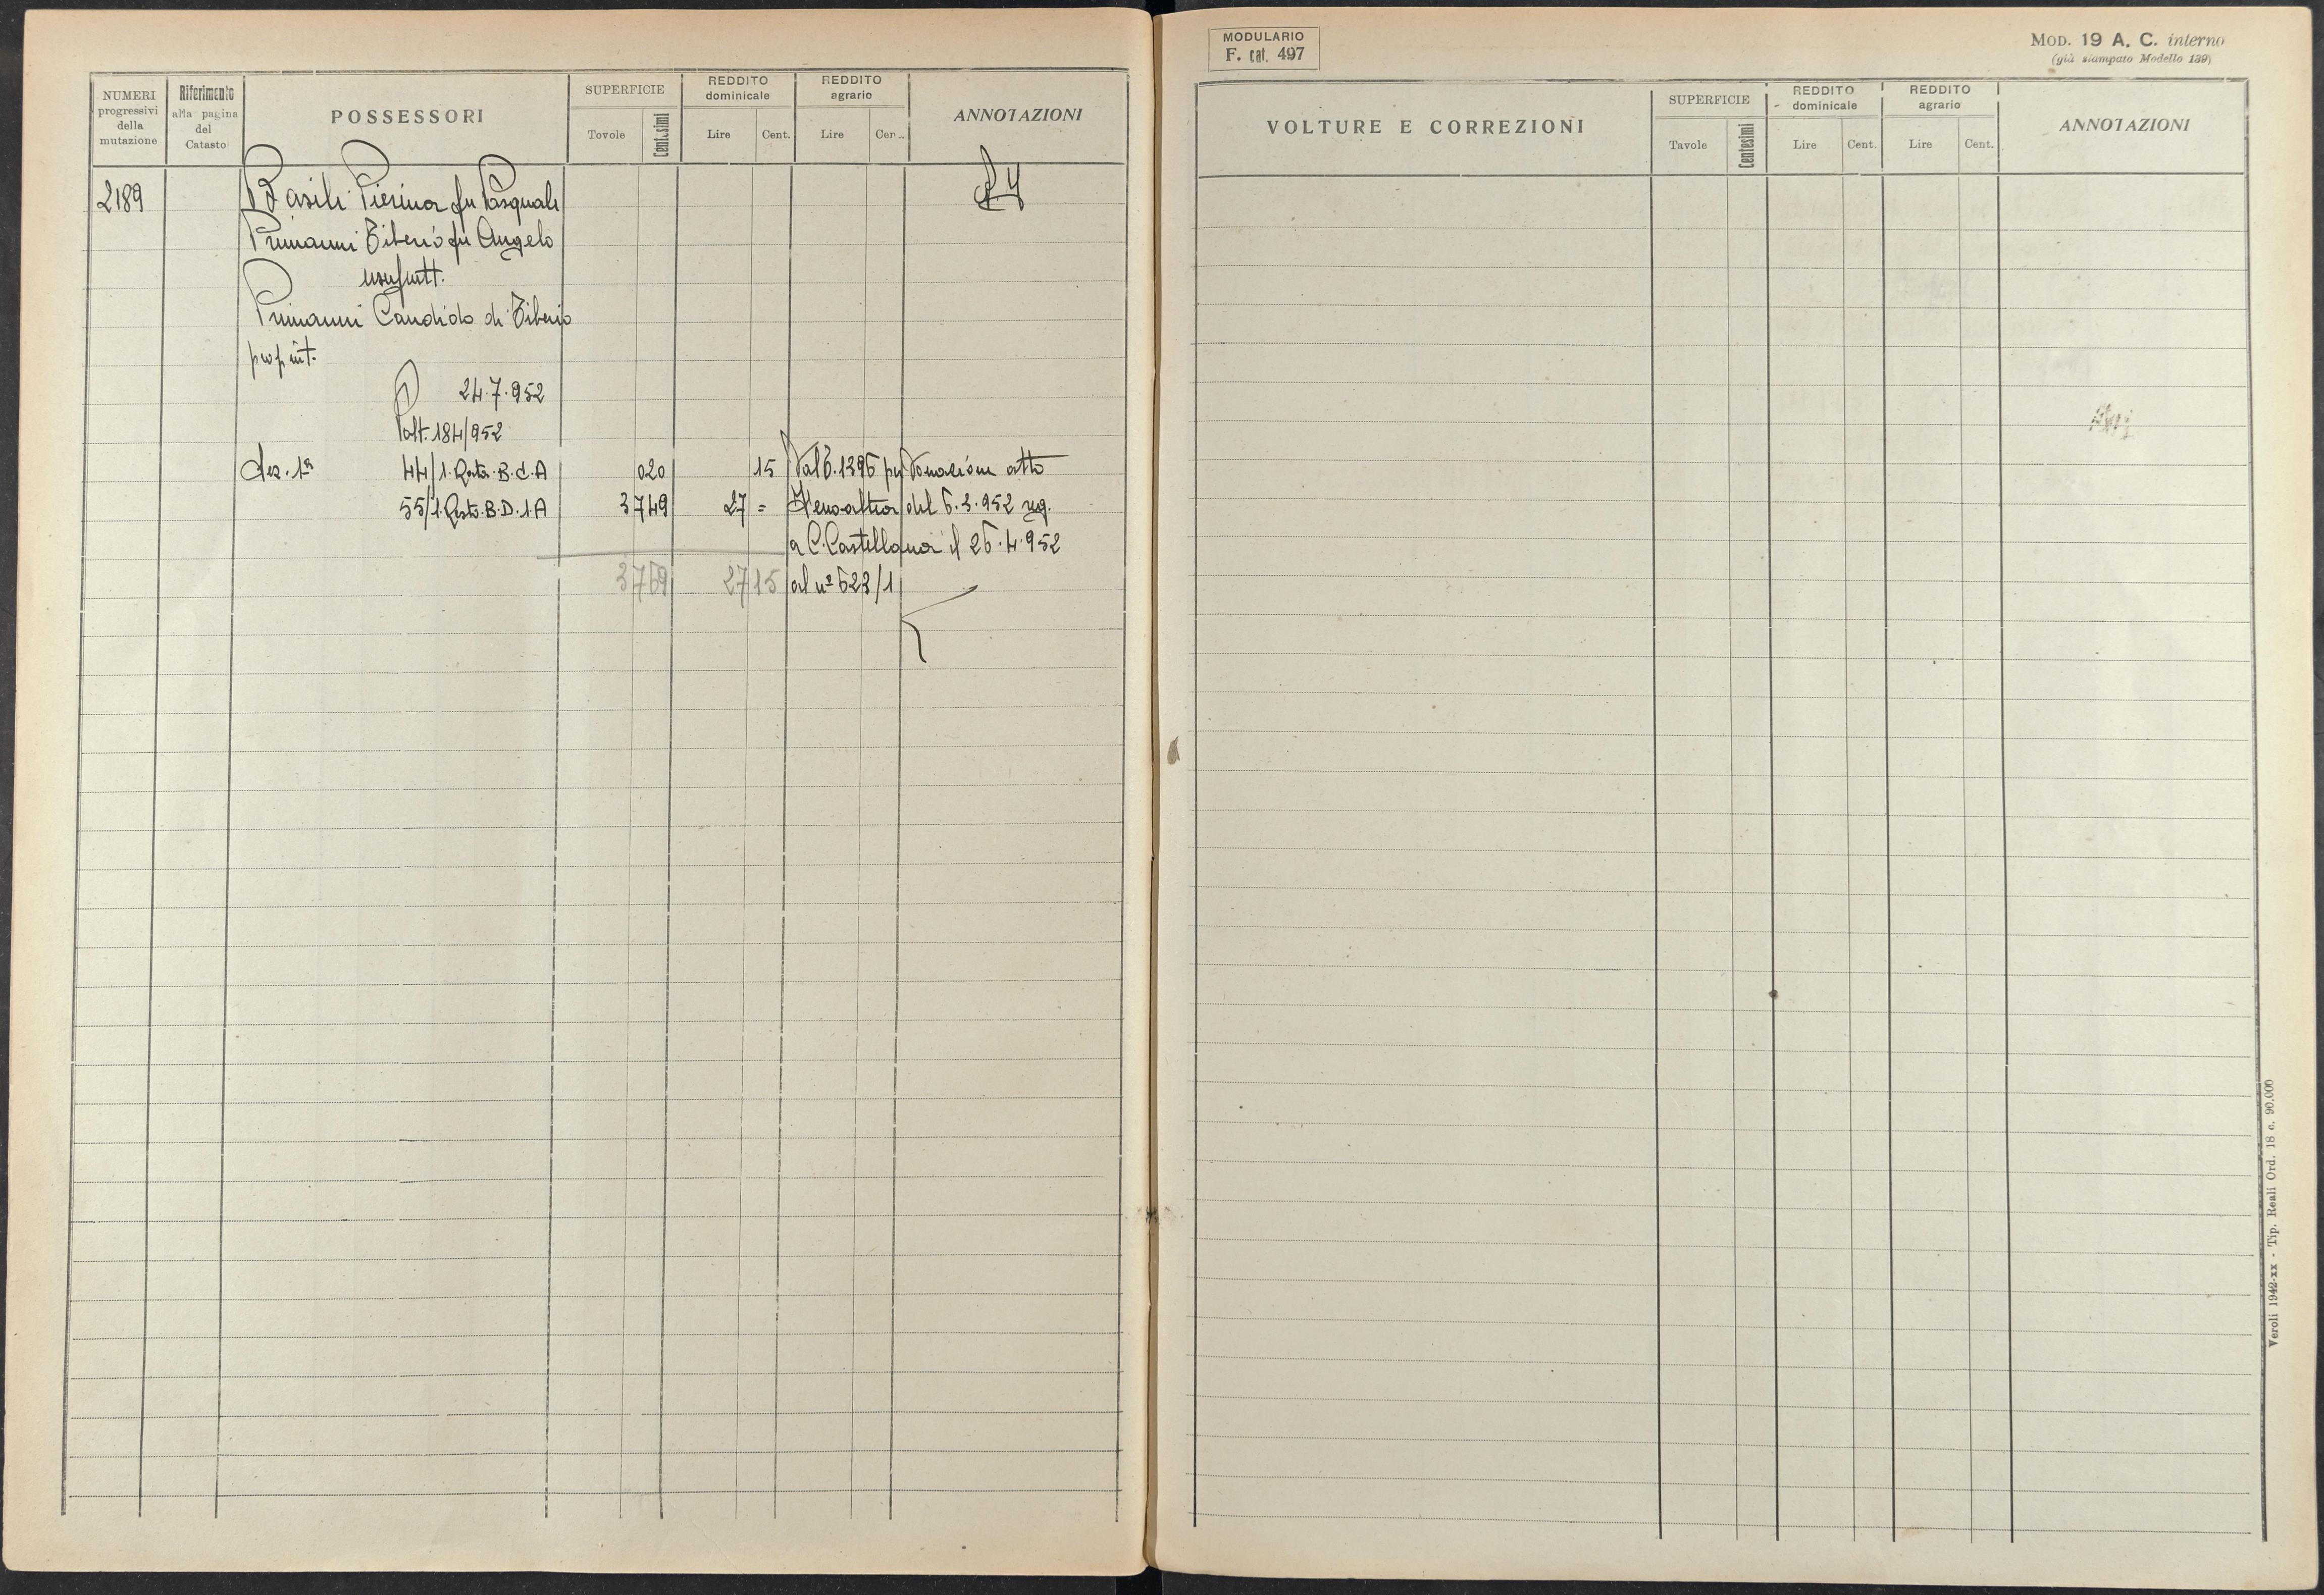 NUMERI progressivi della mutazione
Riferimento alla pagina del Catasto
POSSESSORI
SUPERFICIE
Tovole
Centesimi
REDDITO dominicale
Lire
Cent.
REDDITO agrario
Lire
Cen..
ANNOTAZIONI
2189
Basili Pierina fu Pasquale
Primanni Tiberio fu Angelo
usufrutt.
Primanni Candido di Tiberio
prop int.
① 24.7.952
Volt. 184/952
Sez. 1ª 44/1. Resta. B. C. A 0 20 15 Dal 6.1396 per Donazione atto
55/1. Resto. B. D. 1. A 37 49 27 = del 6.3.952 reg.
a C. Castellana il 26.4.952
37 69 27 15 al nº 623/1
MODULARIO
F. cat. 497
MOD. 19 A. C. interno
(già stampato Modello 139)
VOLTURE E CORREZIONI
SUPERFICIE
Tavole
Centesimi
REDDITO dominicale
Lire
Cent.
REDDITO agrario
Lire
Cent.
ANNOTAZIONI
Veroli 1942-XX - Tip. Reali Ord. 18 c. 90.000